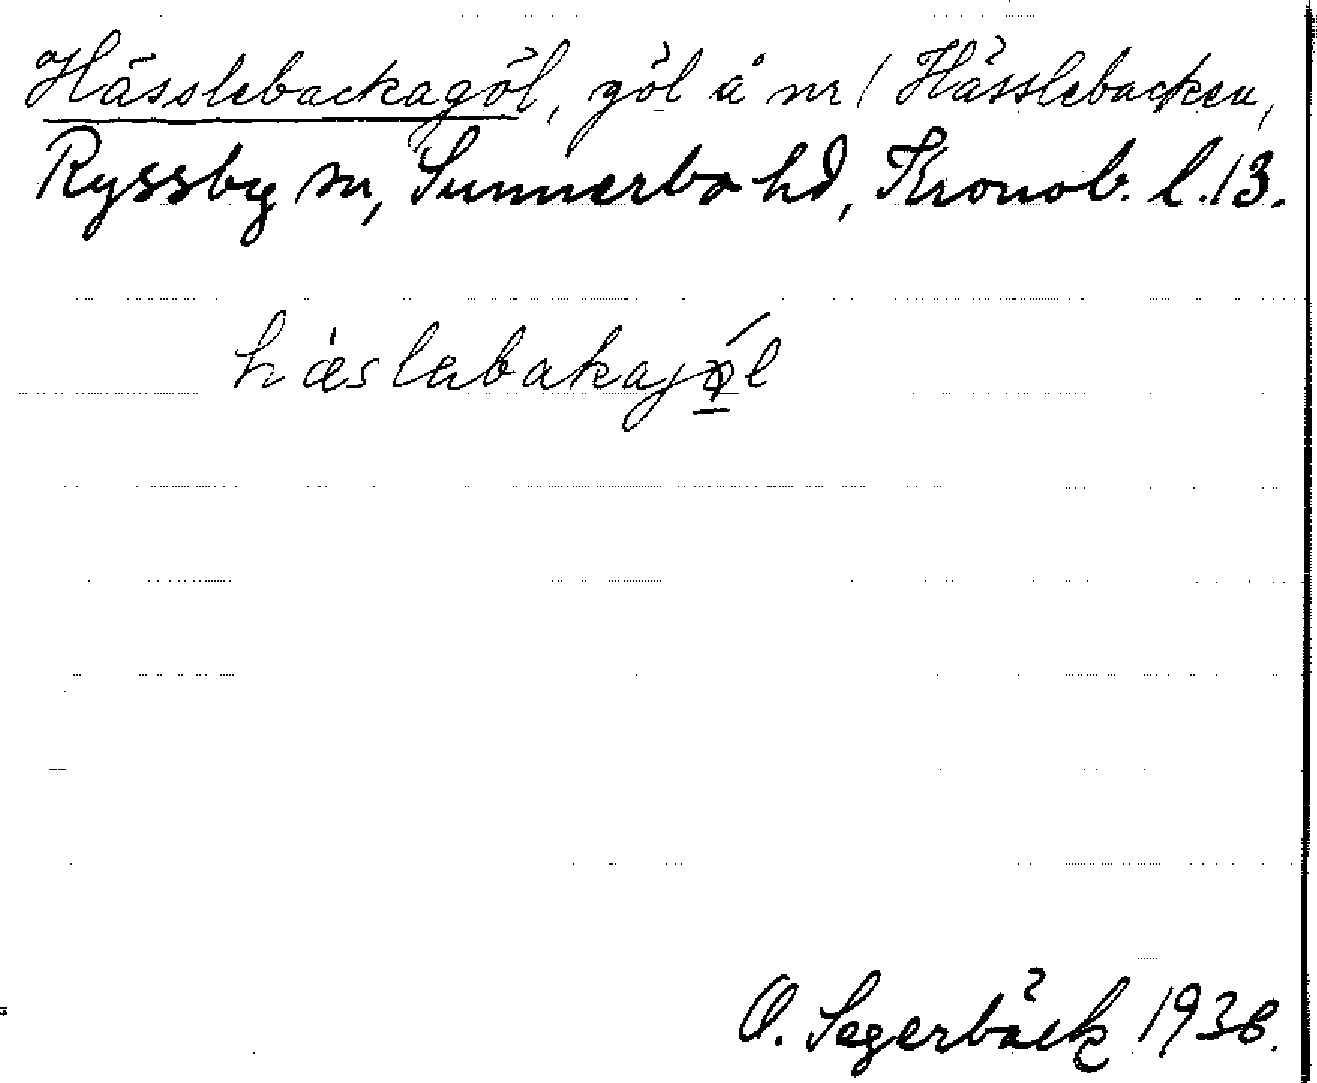 Hässlebackagöl, göl å nr 1 Hässlebacken,
Ryssby sn, Sunnerbo hd, Kronob. l. 13.
hæslabakajøl
O. Segerbäck 1936.